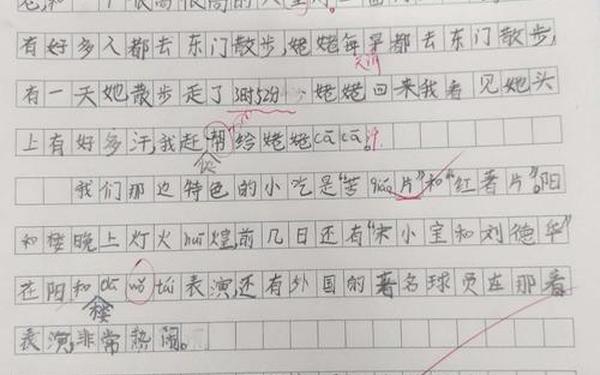 有好多人都去东门散步,姥姥每早都去东门散步,
天
有一天她散步走了3时52分 姥姥回来我看见她头
上有好多汗,我赶帮给姥姥cā cā。
从
我们那边特色的小吃是“苦guā片”和“红薯片”。阳
和楼晚上灯火huī煌,前几日还有“宋小宝和刘德华”
在阳和 tái表演,还有外国的著名球员在那看
楼
表演,非常热闹。